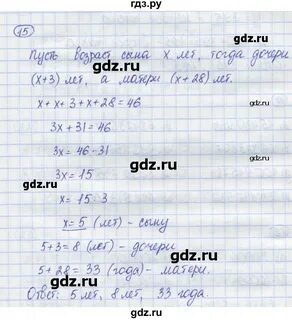 гдз.ру
15
Пусть возраст сына x лет, тогда дочери
(x+3) лет, а матери (x+28) лет.
x + x + 3 + x + 28 = 46
3x + 31 = 46
3x = 46 - 31
3x = 15
x = 15 : 3
x = 5 (лет) - сыну
5+3=8 (лет) - дочери
5 + 28 = 33 (года) - матери.
Ответ: 5 лет, 8 лет, 33 года.
gdz.ru
gdz.ru
gdz.ru
gdz.ru
gdz.ru
gdz.ru
gdz.ru
gdz.ru